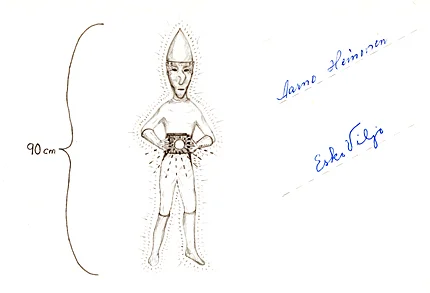 90 cm
Aarno Heinonen
Esko Viljo